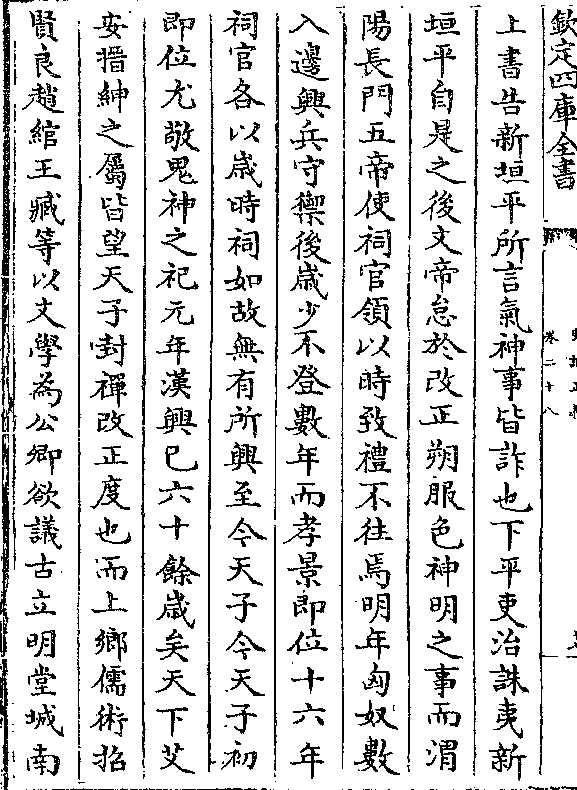 欽定四庫全書
卷二十八
上書告新垣平所言氣神事皆詐也下平吏治誅夷新
垣平自是之後文帝怠於改正朔服色神明之事而渭
陽長門五帝使祠官領以時致禮不往焉明年匈奴數
入邊興兵守禦後嵗少不登數年而孝景即位十六年
祠官各以嵗時祠如故無有所興至今天子今天子初
即位尤敬鬼神之祀元年漢興已六十餘嵗矣天下艾
安搢紳之屬皆望天子封禪改正度也而上鄉儒術招
賢良趙綰王臧等以文學為公卿欲議古立明堂城南